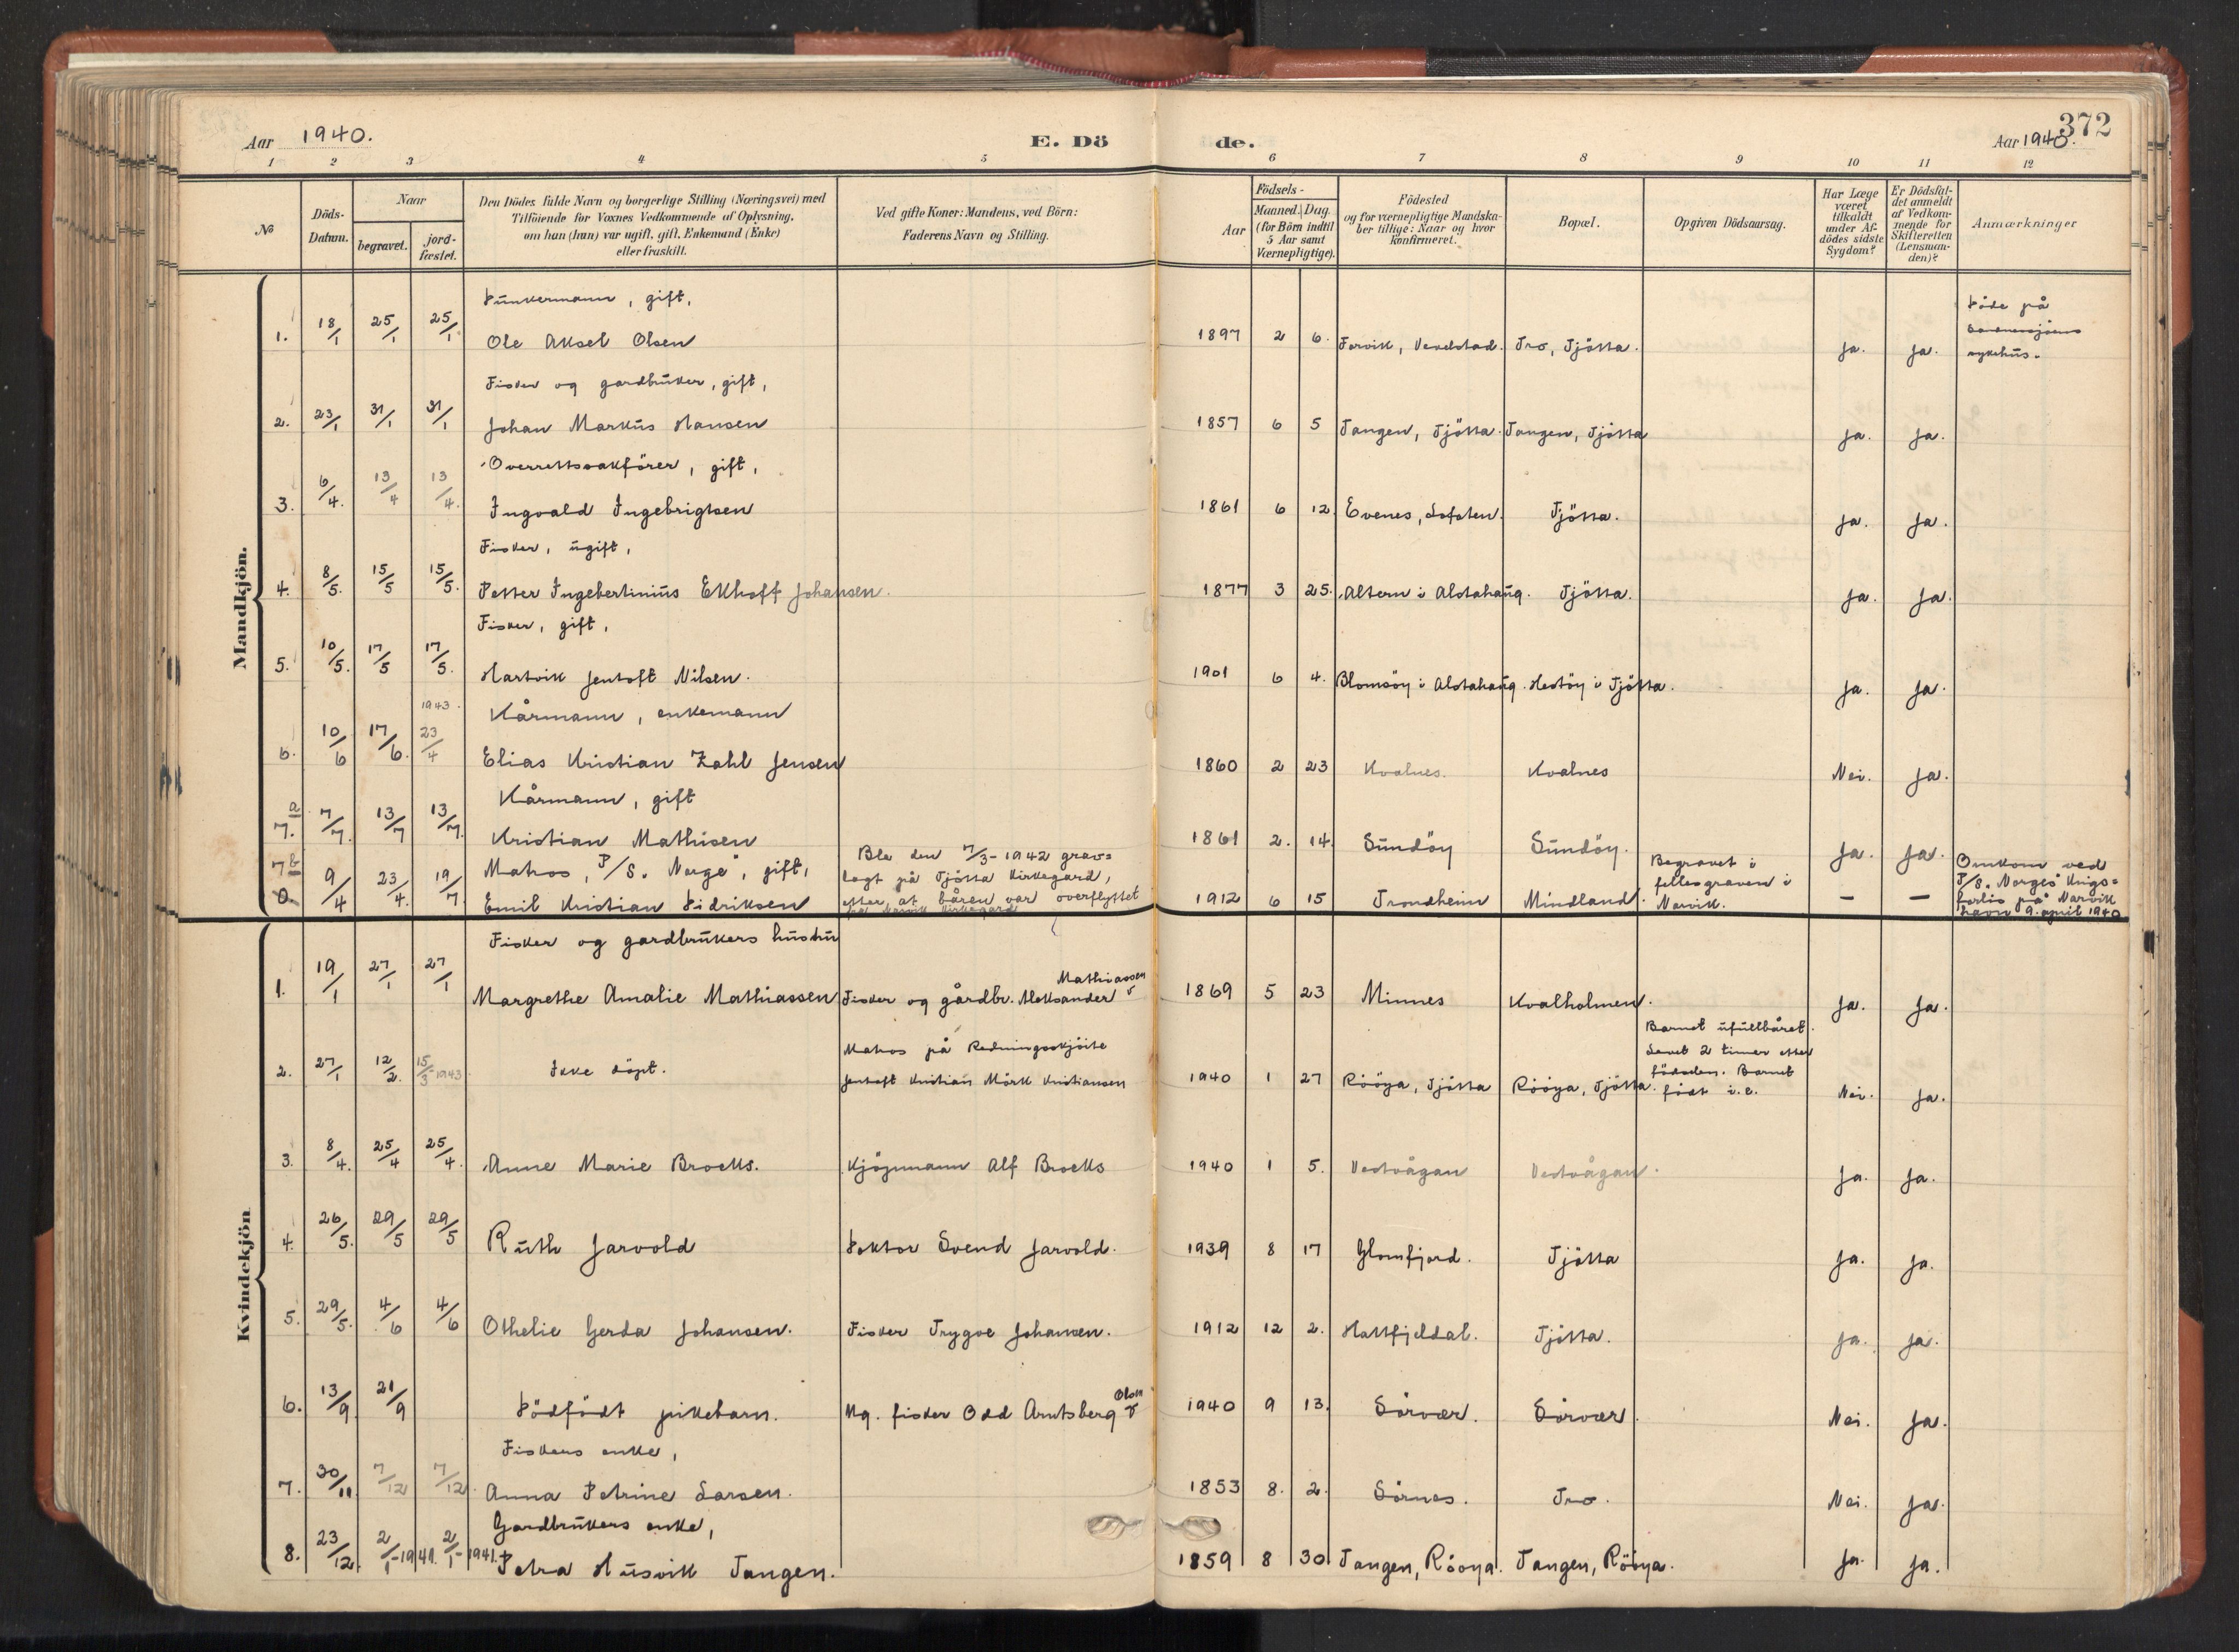 372
Aar 1940. E. Dö de. Aar 1940.
1 2 3 4 5 6 7 8 9 10 11 12
No
Döds-
Datum.
Naar
begravet.
jord-
fæstet.
Den Dödes fulde Navn og borgerlige Stilling (Næringsvei) med
Tilföiende for Voxnes Vedkommende af Oplysning,
om han (hun) var ugift, gift, Enkemand (Enke)
eller fraskilt.
Ved gifte Koner: Mandens, ved Börn:
Faderens Navn og Stilling.
Aar
Födsels-
Maaned. Dag.
(for Börn indtil
5 Aar samt
Værnepligtige).
Födested
og for værnepligtige Mandska-
ber tillige: Naar og hvor
konfirmeret.
Bopæl.
Opgiven Dödsaarsag.
Har Læge
været
tilkaldt
under Af-
dödes sidste
Sygdom?
Er Dödsfal-
det anmeldt
af Vedkom-
mende for
Skifteretten
(Lensman-
den)?
Anmærkninger
Mandkjön.
Dunkermann, gift,
1. 18/1 25/1 25/1 Ole Aksel Olsen 1897 2 6. Forvik, Vevelstad. Tro, Tjötta. Ja. Ja.
Döde på
Sandnessjöens
sykehus.
Fisker og gardbruker, gift,
2. 23/1 31/1 31/1 Johan Markus Hansen 1857 6 5 Tangen, Tjötta. Tangen, Tjötta Ja. Ja.
Overrettssakförer, gift,
3. 6/4. 13/4 13/4. Ingvald Ingebrigtsen 1861 6 12 Evenes, Lofoten. Tjötta. Ja. Ja.
Fisker, ugift,
4. 8/5. 15/5 15/5. Petter Ingebertinius Ekhoff Johansen. 1877 3 25. Altern i Alstahaug. Tjötta. Ja. Ja.
Fisker, gift,
5. 10/5. 17/5 17/5. Hartvik Jentoft Nilsen. 1901 6 4. Blomsöy i Alstahaug. Hestöy i Tjötta. Ja. Ja.
1943. Kårmann, enkemann
6. 10/6 17/6. 23/4 Elias Kristian Zahl Jensen 1860 2 23 Kvalnes. Kvalnes Nei. Ja.
Kårmann, gift
7.a 7/7. 13/7 13/7. Kristian Mathisen 1861 2. 14. Sundöy Sundöy. Ja. Ja.
7b Matros, P/S. "Norge", gift,
9/4 23/4. 19/7. Emil Kristian Didriksen
Ble den 7/3-1942 grav=
lagt på Tjötta kirkegard,
etter at båren var overflyttet
Narvik kirkegard
1912 6 15 Trondheim Mindland.
Begravet i
fellesgraven i
Narvik.
— —
Omkom ved
P/S. "Norges" krigs=
forlis på Narvik
havn 9. april 1940
Kvindekjön
Fisker og gardbrukers hustru
1. 19/1 27/1 27/1 Margrethe Amalie Mathiassen Fisker og gårdbr. Aleksander Mathiassen 1869 5 23 Minnes Kvalholmen. Ja. Ja.
2. 27/1 12/2. 15/3 1943 Ikke döpt.
Matros på Redningsskjöite
Jentoft Kristian Mörk Kristiansen
1940 1 27 Rööya, Tjötta Rööya, Tjötta.
Barnet ufullbåret.
Levet 2 timer etter
födselen. Barnet
födt i.e.
Nei. Ja.
3. 8/4. 25/4 25/4. Anne Marie Brocks. Kjöpmann Alf Brocks 1940 1 5. Vestvågan Vestvågan. Ja. Ja.
4. 26/5. 29/5 29/5 Ruth Jarvold Doktor Svend Jarvold. 1939 8 17 Glomfjord. Tjötta Ja. Ja.
5. 29/5. 4/6 4/6 Othelie Gerda Johansen. Fisker Trygve Johansen. 1912 12 2. Hattfjeldal. Tjötta. Ja. Ja.
6. 13/9. 21/9 Dödfödt pikebarn. Ug. fisker Odd Arntsberg Olsen 1940 9 13. Sörvær. Sörvær. Nei. Ja.
Fiskers enke,
7. 30/11. 7/12 7/12. Anna Petrine Larsen. 1853 8. 2. Sörnes. Tro. Nei. Ja.
Gardbrukers enke,
8. 23/12. 2/1-1941. 2/1-1941. Petra Husvik Tangen. 1859 8 30 Tangen, Rööya. Tangen, Rööya. Ja. Ja.